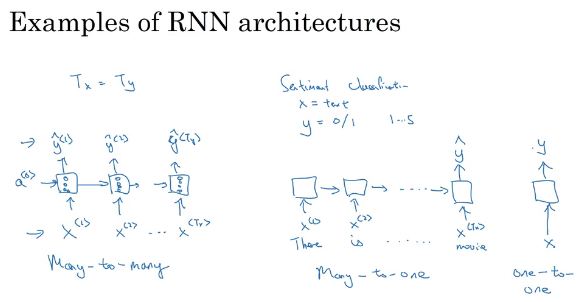 Examples of RNN architectures
Tx = Ty
→ ŷ<1> ŷ<2> ŷ<Ty>
a<0>
→ x<1> x<2> ... x<Tx>
Many-to-many
Sentiment classification
x = text
y = 0/1 1...5
ŷ
x<1> x<2> ..... x<Tx>
There is ...... movie
Many-to-one
y
x
one-to-
one